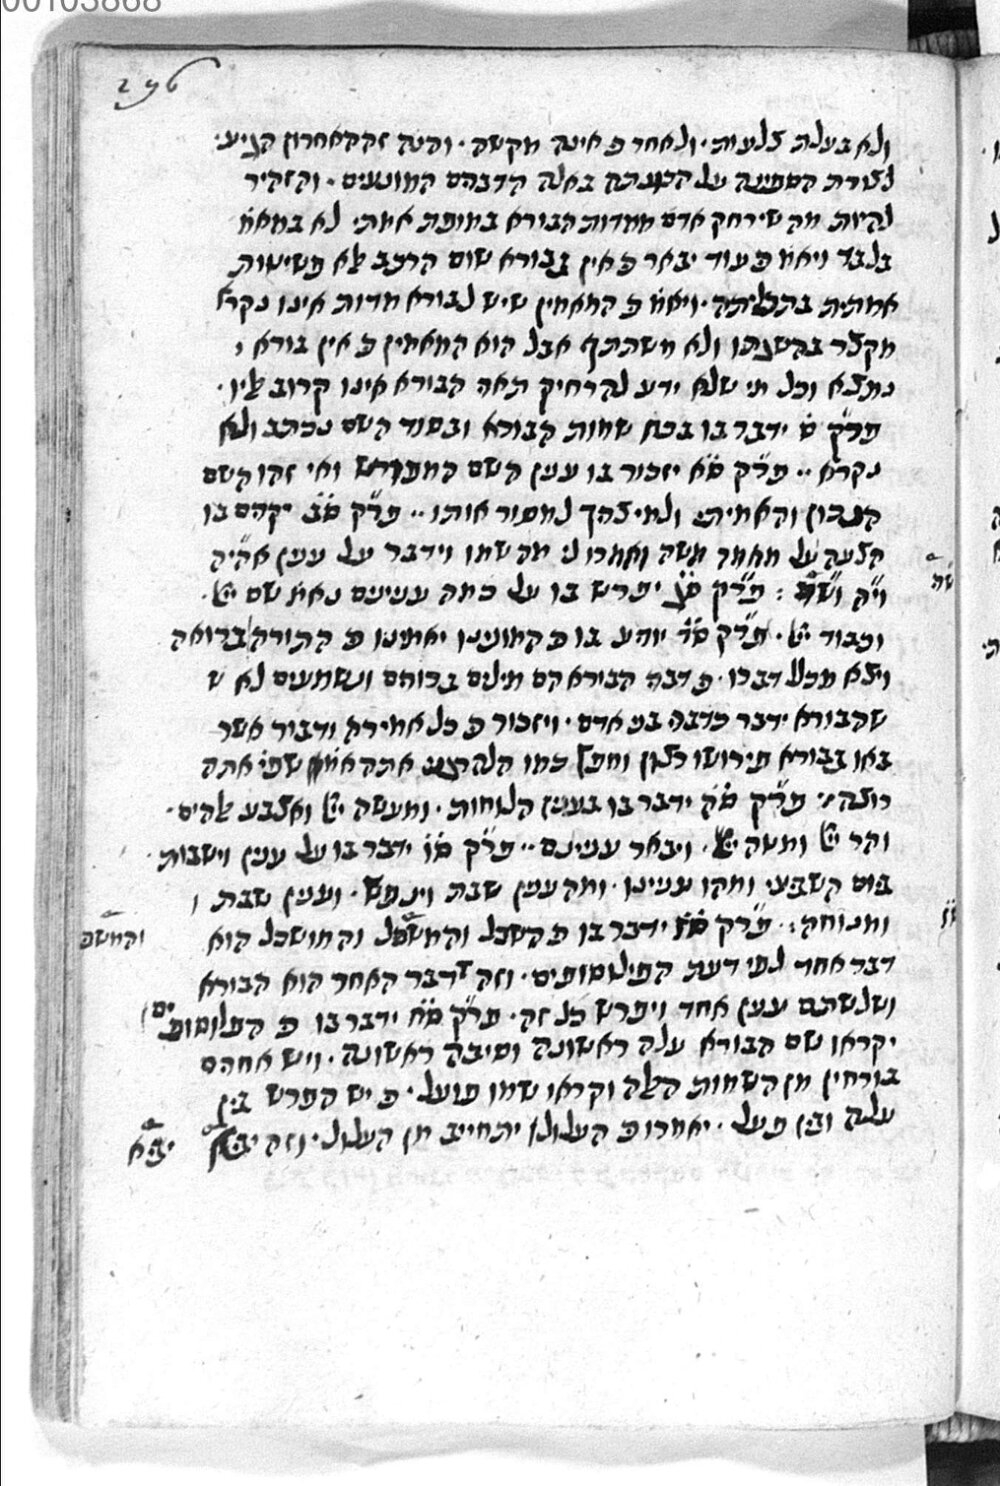 00103868
296
ולא בעלת צלעות · ולאחר כ׳ אינה מקשה · והנה זה האחרון הגיע ·
לצורת הספינה על הכונתה באלה הדברים המונעים · והזהיר
להיות מה שירחק אדם ממדות הבורא במופת אמתי לא במאמ׳
בלבד ויאמ׳ כ׳ עוד יבאר כ׳ אין בבורא שום הרכב לא פשיטות
אמתית בתכליתה · ויאמ׳ כ׳ המאמין שיש לבורא מדות אינו נקרא
מקצר בהשגתו ולא משתתף אבל הוא המאמין כ׳ אין בורא ׳
נמצא וכל מי שלא ידע להרחיק תאר הבורא אינו קרוב אליו ·
פר״ק ס׳ ידבר בו בכח שמות הבורא ובסוד השם נכתב ולא
נקרא ·· פר״ק ס״א יזכור בו ענין השם המפורש ואי זהו השם
הנכון והאמיתי ולמי צריך למסור אותו ·· פר״ק ס״ב יקהם בו
הלעה על מאמר משה ואמרו לי מה שמו וידבר על ענין אהיה
וי״ה ושד״י : פר״ק ס״ג יפרש בו על כמה ענינים נאמ׳ שם יי׳ ·
וכבוד יי׳ · פר״ק ס״ד יודע בו כ׳ המונינו יאמינו כ׳ התורה ברואה
ויצא מכלל דברו · כ׳ דבה הבירא הם מילים ברוחם ונשמעים לא ש
שהבורא ידבר כדבר בני אדם · ויזכור כ׳ כל אמירה ודבור אשר
באו בבורא פירושו רצון וחפץ כמו הלהרגני אתה אומ׳ שפי׳ אתה
רוצה ·: פר״ק ס״ה ידבר בו בענין הלוחות · ומעשה יי׳ ואצבע אלהים ·
והר יי׳ ומטה יי׳ · ויבאר ענינם ·· פר״ק ס״ו ידבר בו על ענין וישבות ·
ביום השבעי ומהו ענינו · ומה ענין שבת וינפש · וענין שבת ו
ומנוחה :· פר״ק ס״ז ידבר בו כ׳ השכל והמשכל והמושכל הוא
והמשכ׳
דבר אחד לפי דעת הפילוסופים · וזה הדבר האחד הוא הבורא
ושלשתם ענין אחד ויפרש כל זה · פר״ק ס״ח ידבר בו כ׳ הפלוסופים
יקראו שם הבורא עלה ראשונה וסיבה ראשונה · ויש אחרים
בורחין מן השמות האלה וקראו שמו פועל · כ׳ יש הפרש בין
עלה ובין פעל · יאמרו כ׳ העלול יתחייב מן העלול · וזה יביא
יביא